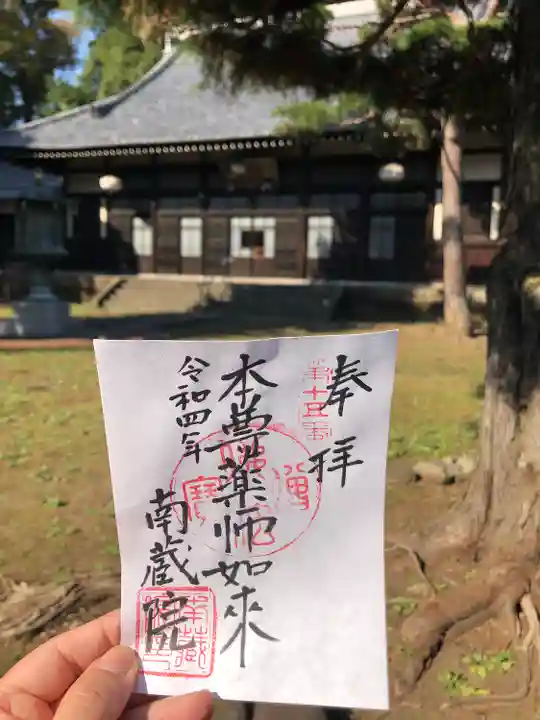 奉拝
本尊薬師如来
令和四年
南蔵院